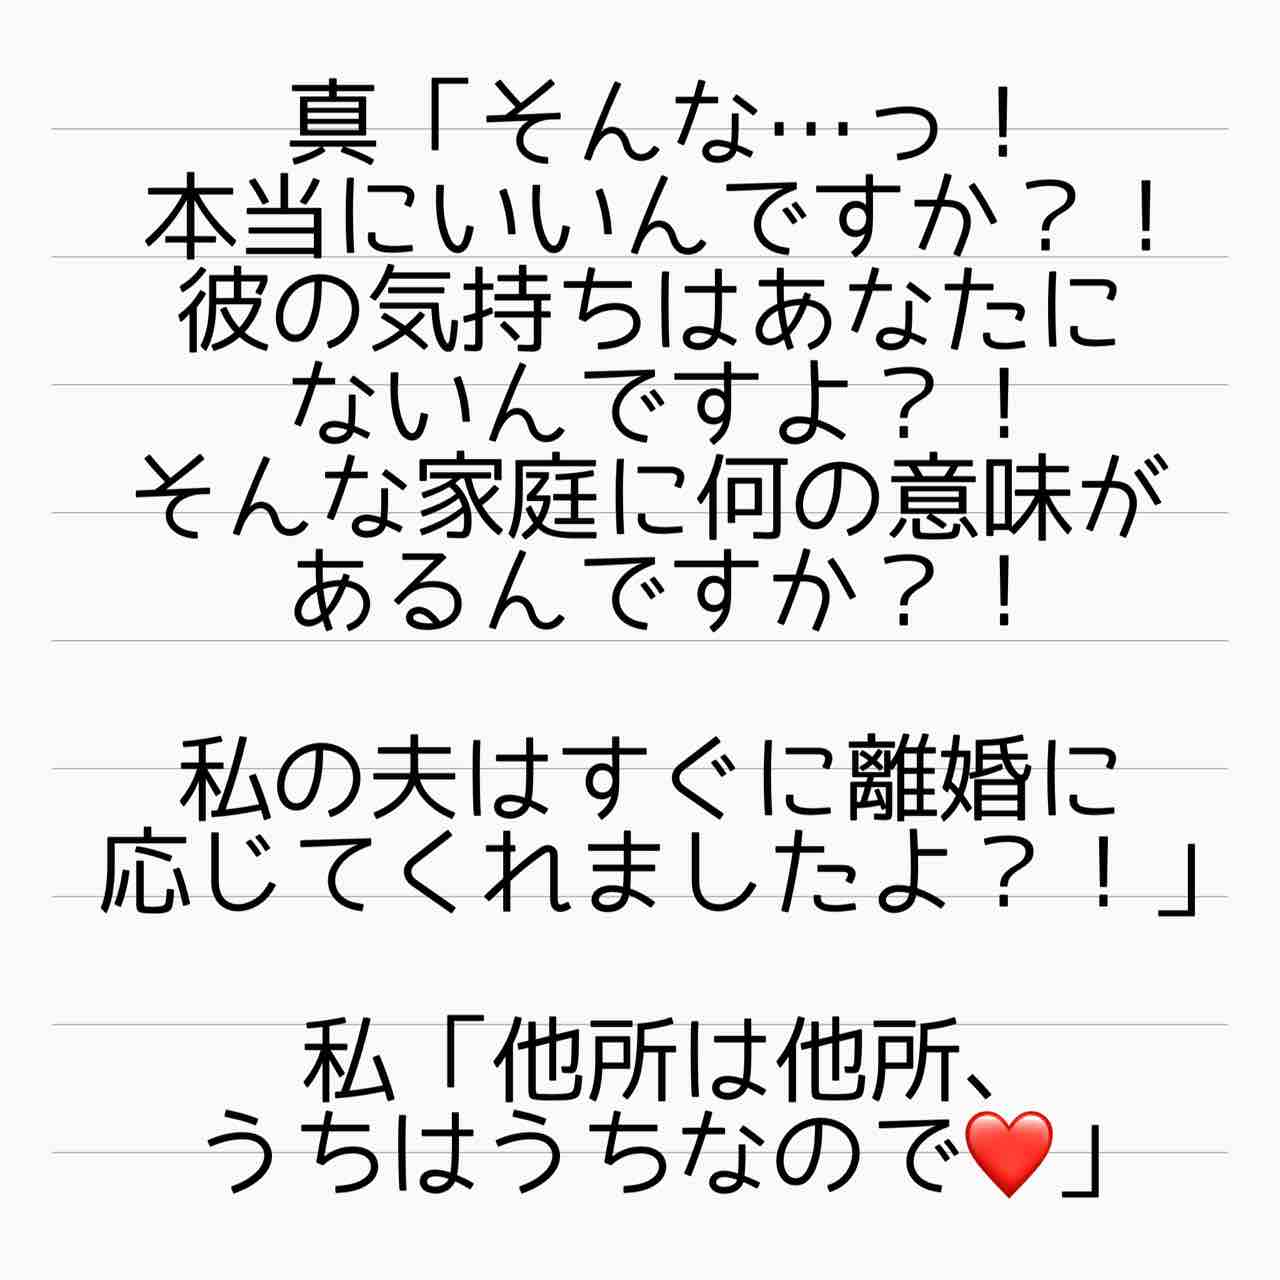 真「そんな…っ！
本当にいいんですか？！
彼の気持ちはあなたに
ないんですよ？！
そんな家庭に何の意味が
あるんですか？！
私の夫はすぐに離婚に
応じてくれましたよ？！」
私「他所は他所、
うちはうちなので❤️」